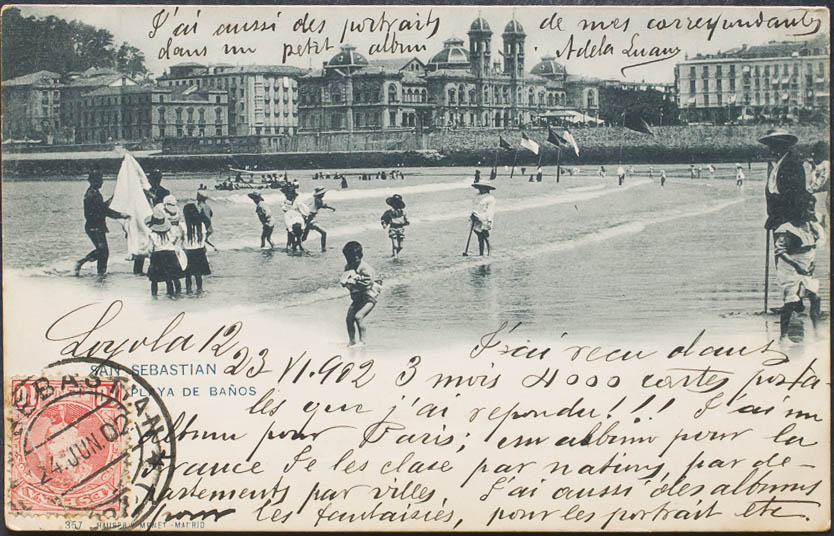 J'ai aussi des portraits de mes correspondants
dans un petit album. Adela
Loyola 12
SAN SEBASTIAN 23 VI. 902
PLAYA DE BAÑOS
J'ai reçu dans
3 mois 4000 cartes posta
les que j'ai repondu!!! J'ai un
album pour Paris; un albino pour la
France Je les clase par nations, par de-
partements par villes. J'ai aussi des albums
pour les fantaisiés, pour les portrait etc.
SEBASTIAN
24 JUN 02
357 HAUSER Y MENET-MADRID